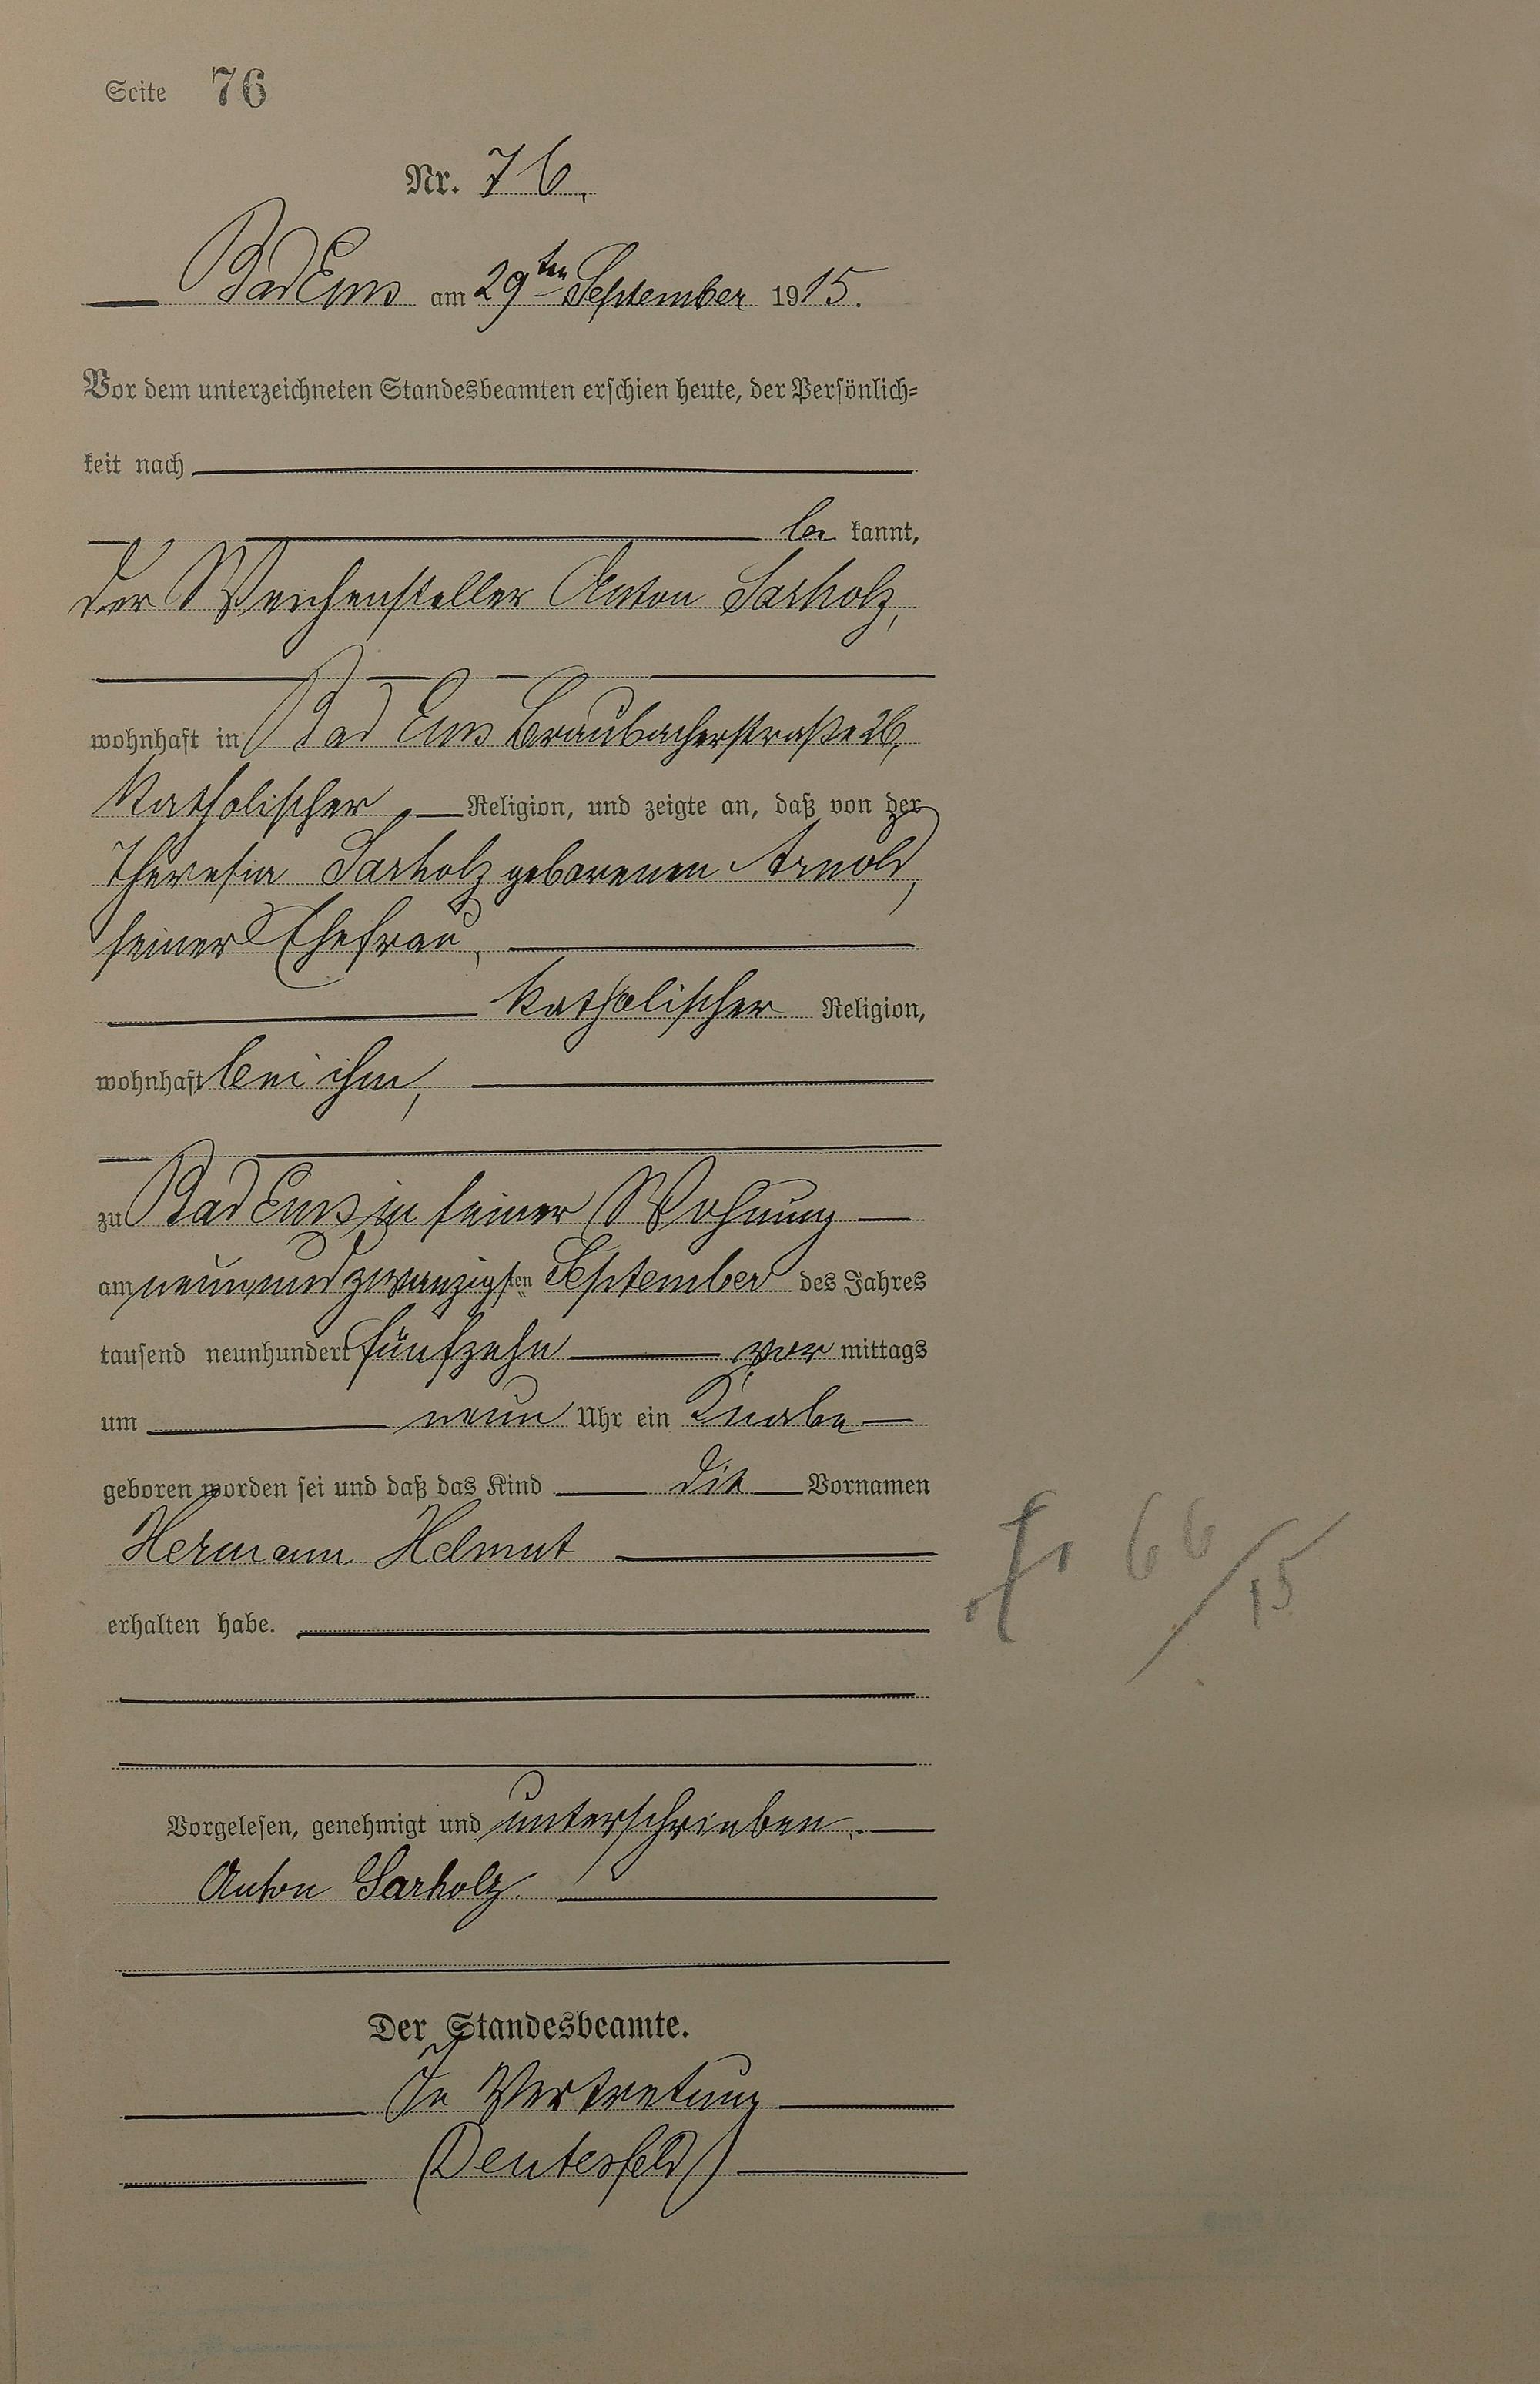 Seite 76
Nr. 76.
Bad Ems am 29ten September 1915.
Vor dem unterzeichneten Standesbeamten erschien heute, der Persönlich-
keit nach
be kannt,
der Weichensteller Anton Sarholz,
wohnhaft in Bad Ems Braubacherstraße 26,
katholischer Religion, und zeigte an, daß von der
Theresia Sarholz geborenen Arnold,
seiner Ehefrau,
katholischer Religion,
wohnhaft bei ihm,
zu Bad Ems in seiner Wohnung
am neunundzwanzigsten September des Jahres
tausend neunhundert fünfzehn vor mittags
um neun Uhr ein Knabe
geboren worden sei und daß das Kind die Vornamen
Hermann Helmut
erhalten habe.
66/15
Vorgelesen, genehmigt und unterschrieben.
Anton Sarholz
Der Standesbeamte.
In Vertretung
(Deutesfeld)